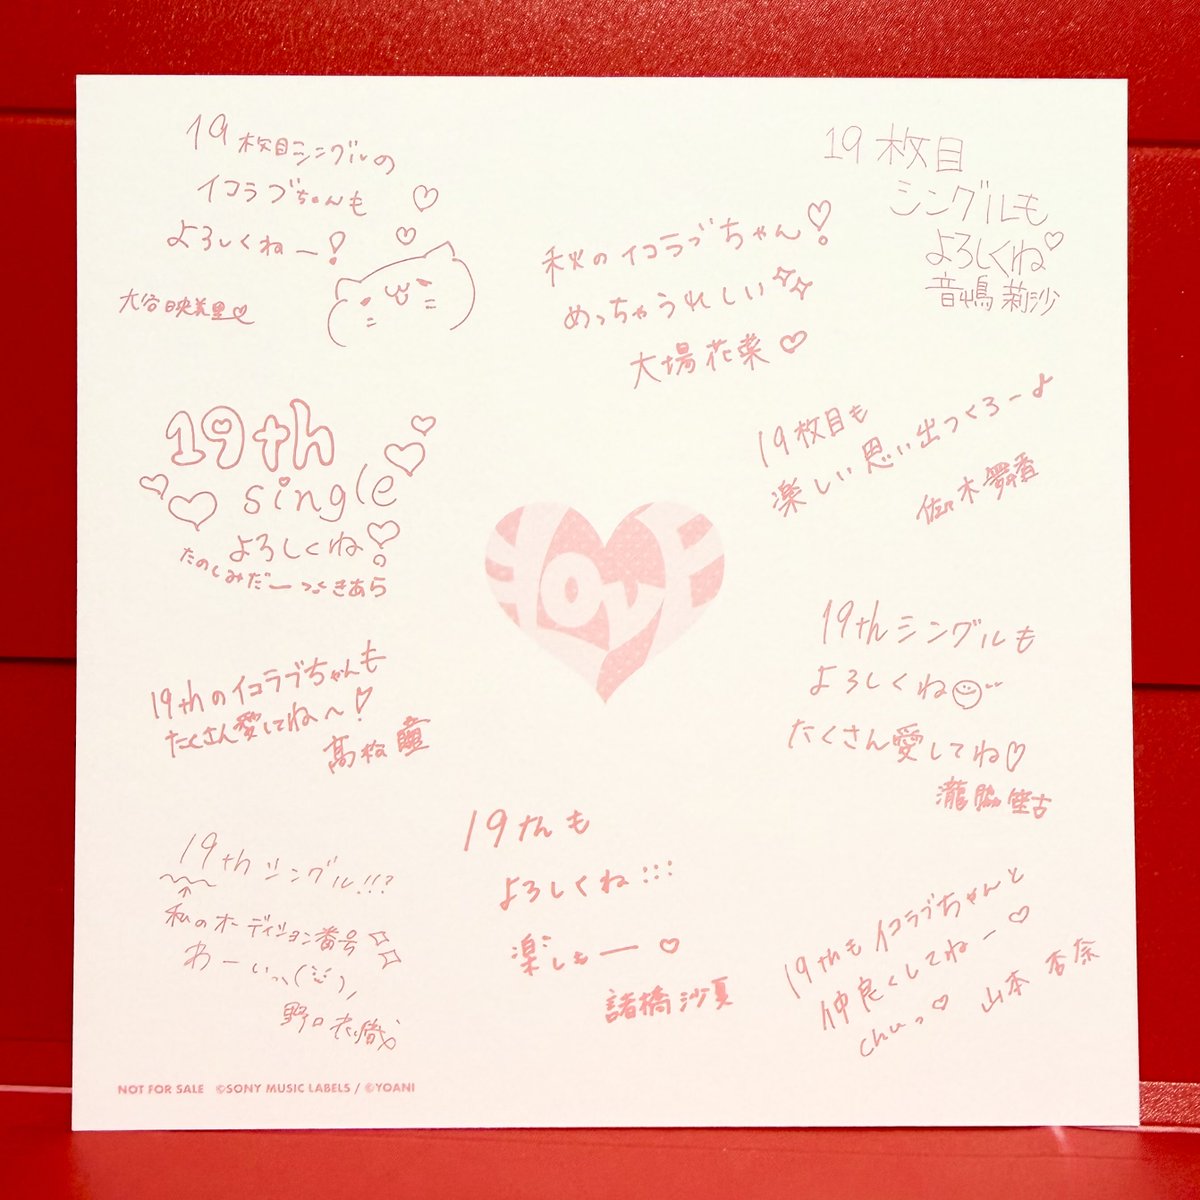 19枚目シングルの
イコラブちゃんも
よろしくねー!
大谷映美里
秋のイコラブちゃん!
めっちゃうれしい
大場花菜
19枚目
シングルも
よろしくね
音嶋莉沙
19th
single
よろしくね!
たのしみだーっ
きあら
19枚目も
楽しい思い出つくろーよ
佐々木舞香
LOVE
19thのイコラブちゃんも
たくさん愛してね〜!
髙松瞳
19thシングルも
よろしくね
たくさん愛してね
瀧脇笙古
19thシングル!!?
↑
私のオーディション番号
わーいっ、
野口衣織
19thも
よろしくね
楽しもー
諸橋沙夏
19thもイコラブちゃんと
仲良くしてねー
chuっ
山本杏奈
NOT FOR SALE ©SONY MUSIC LABELS / ©YOANI